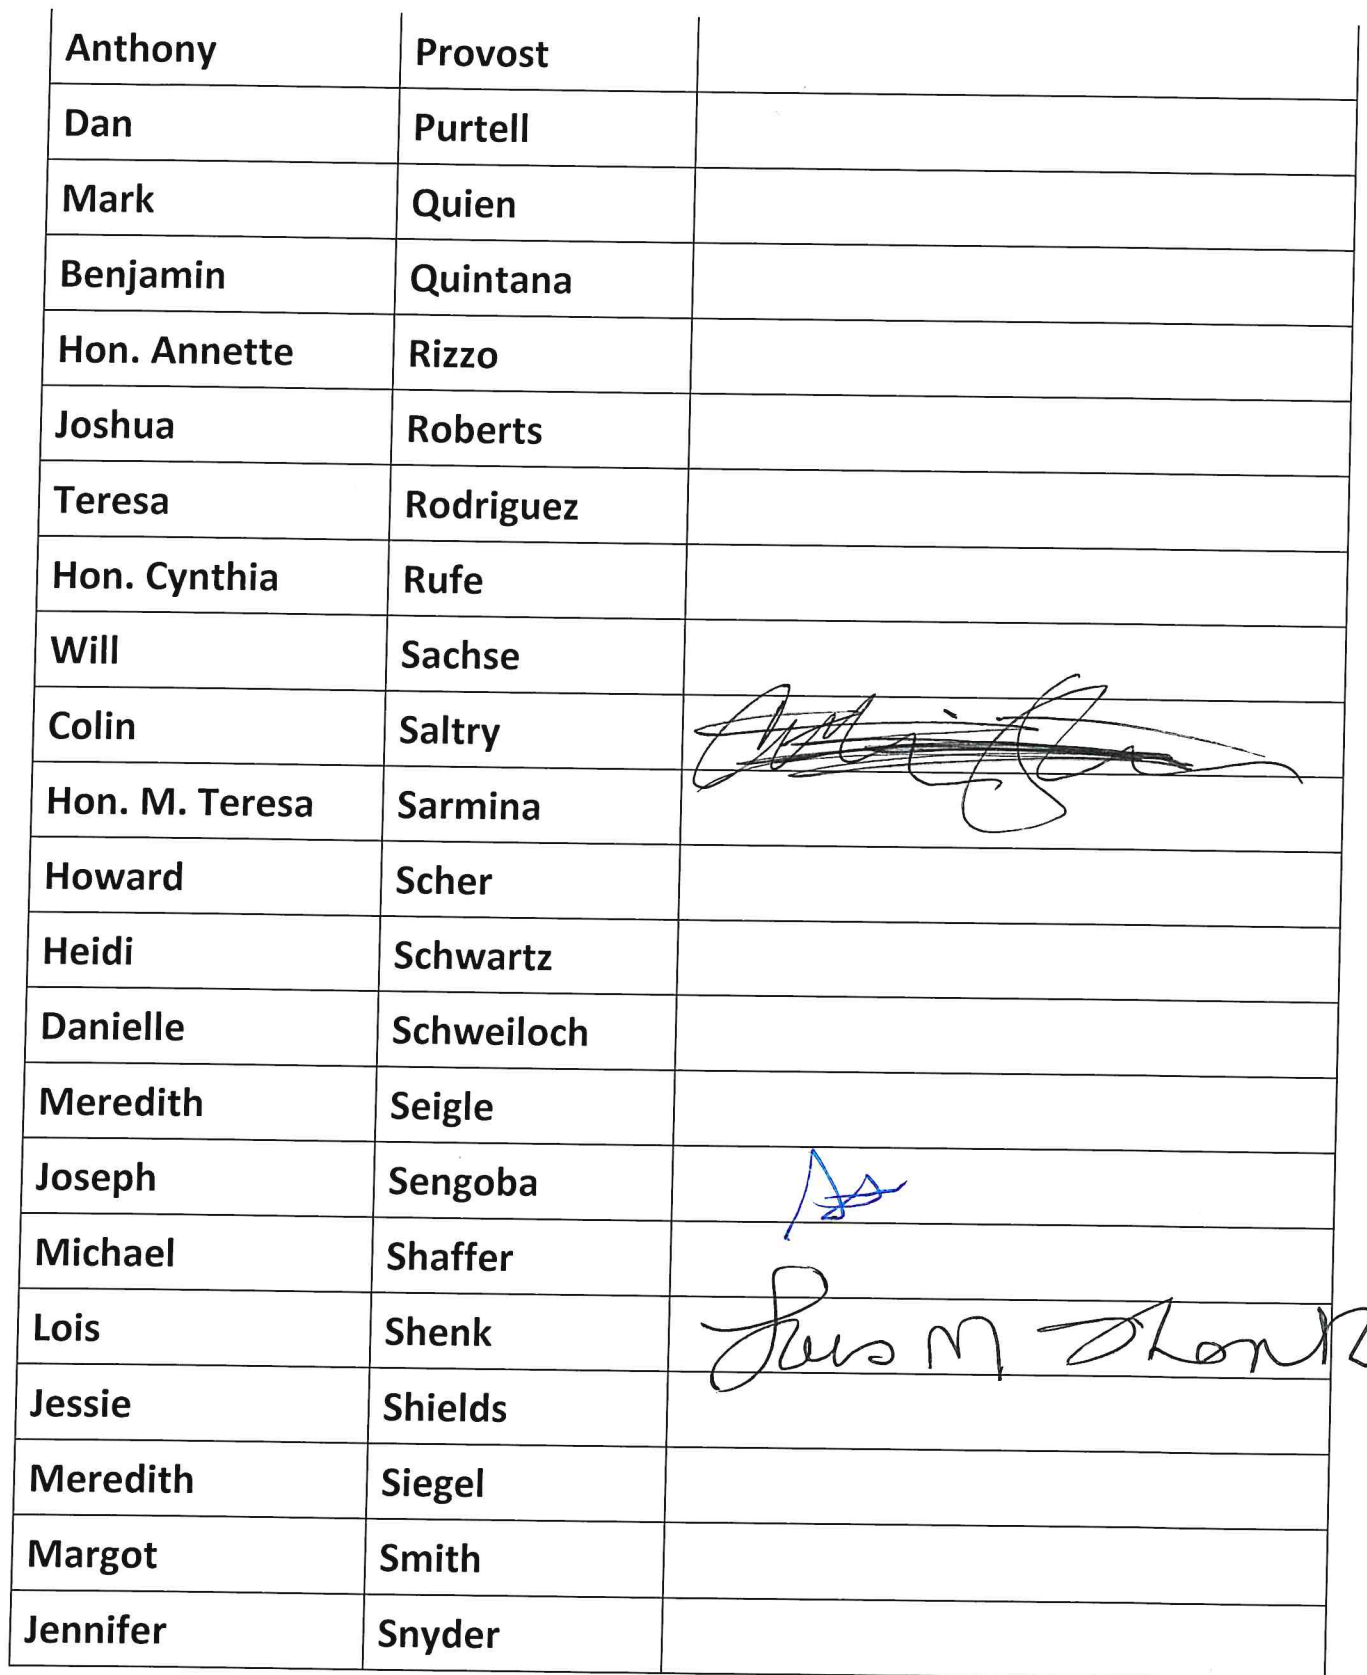 Anthony Provost
Dan Purtell
Mark Quien
Benjamin Quintana
Hon. Annette Rizzo
Joshua Roberts
Teresa Rodriguez
Hon. Cynthia Rufe
Will Sachse
Colin Saltry
Hon. M. Teresa Sarmina
Howard Scher
Heidi Schwartz
Danielle Schweiloch
Meredith Seigle
Joseph Sengoba
Michael Shaffer
Lois Shenk Lois M Shenk
Jessie Shields
Meredith Siegel
Margot Smith
Jennifer Snyder